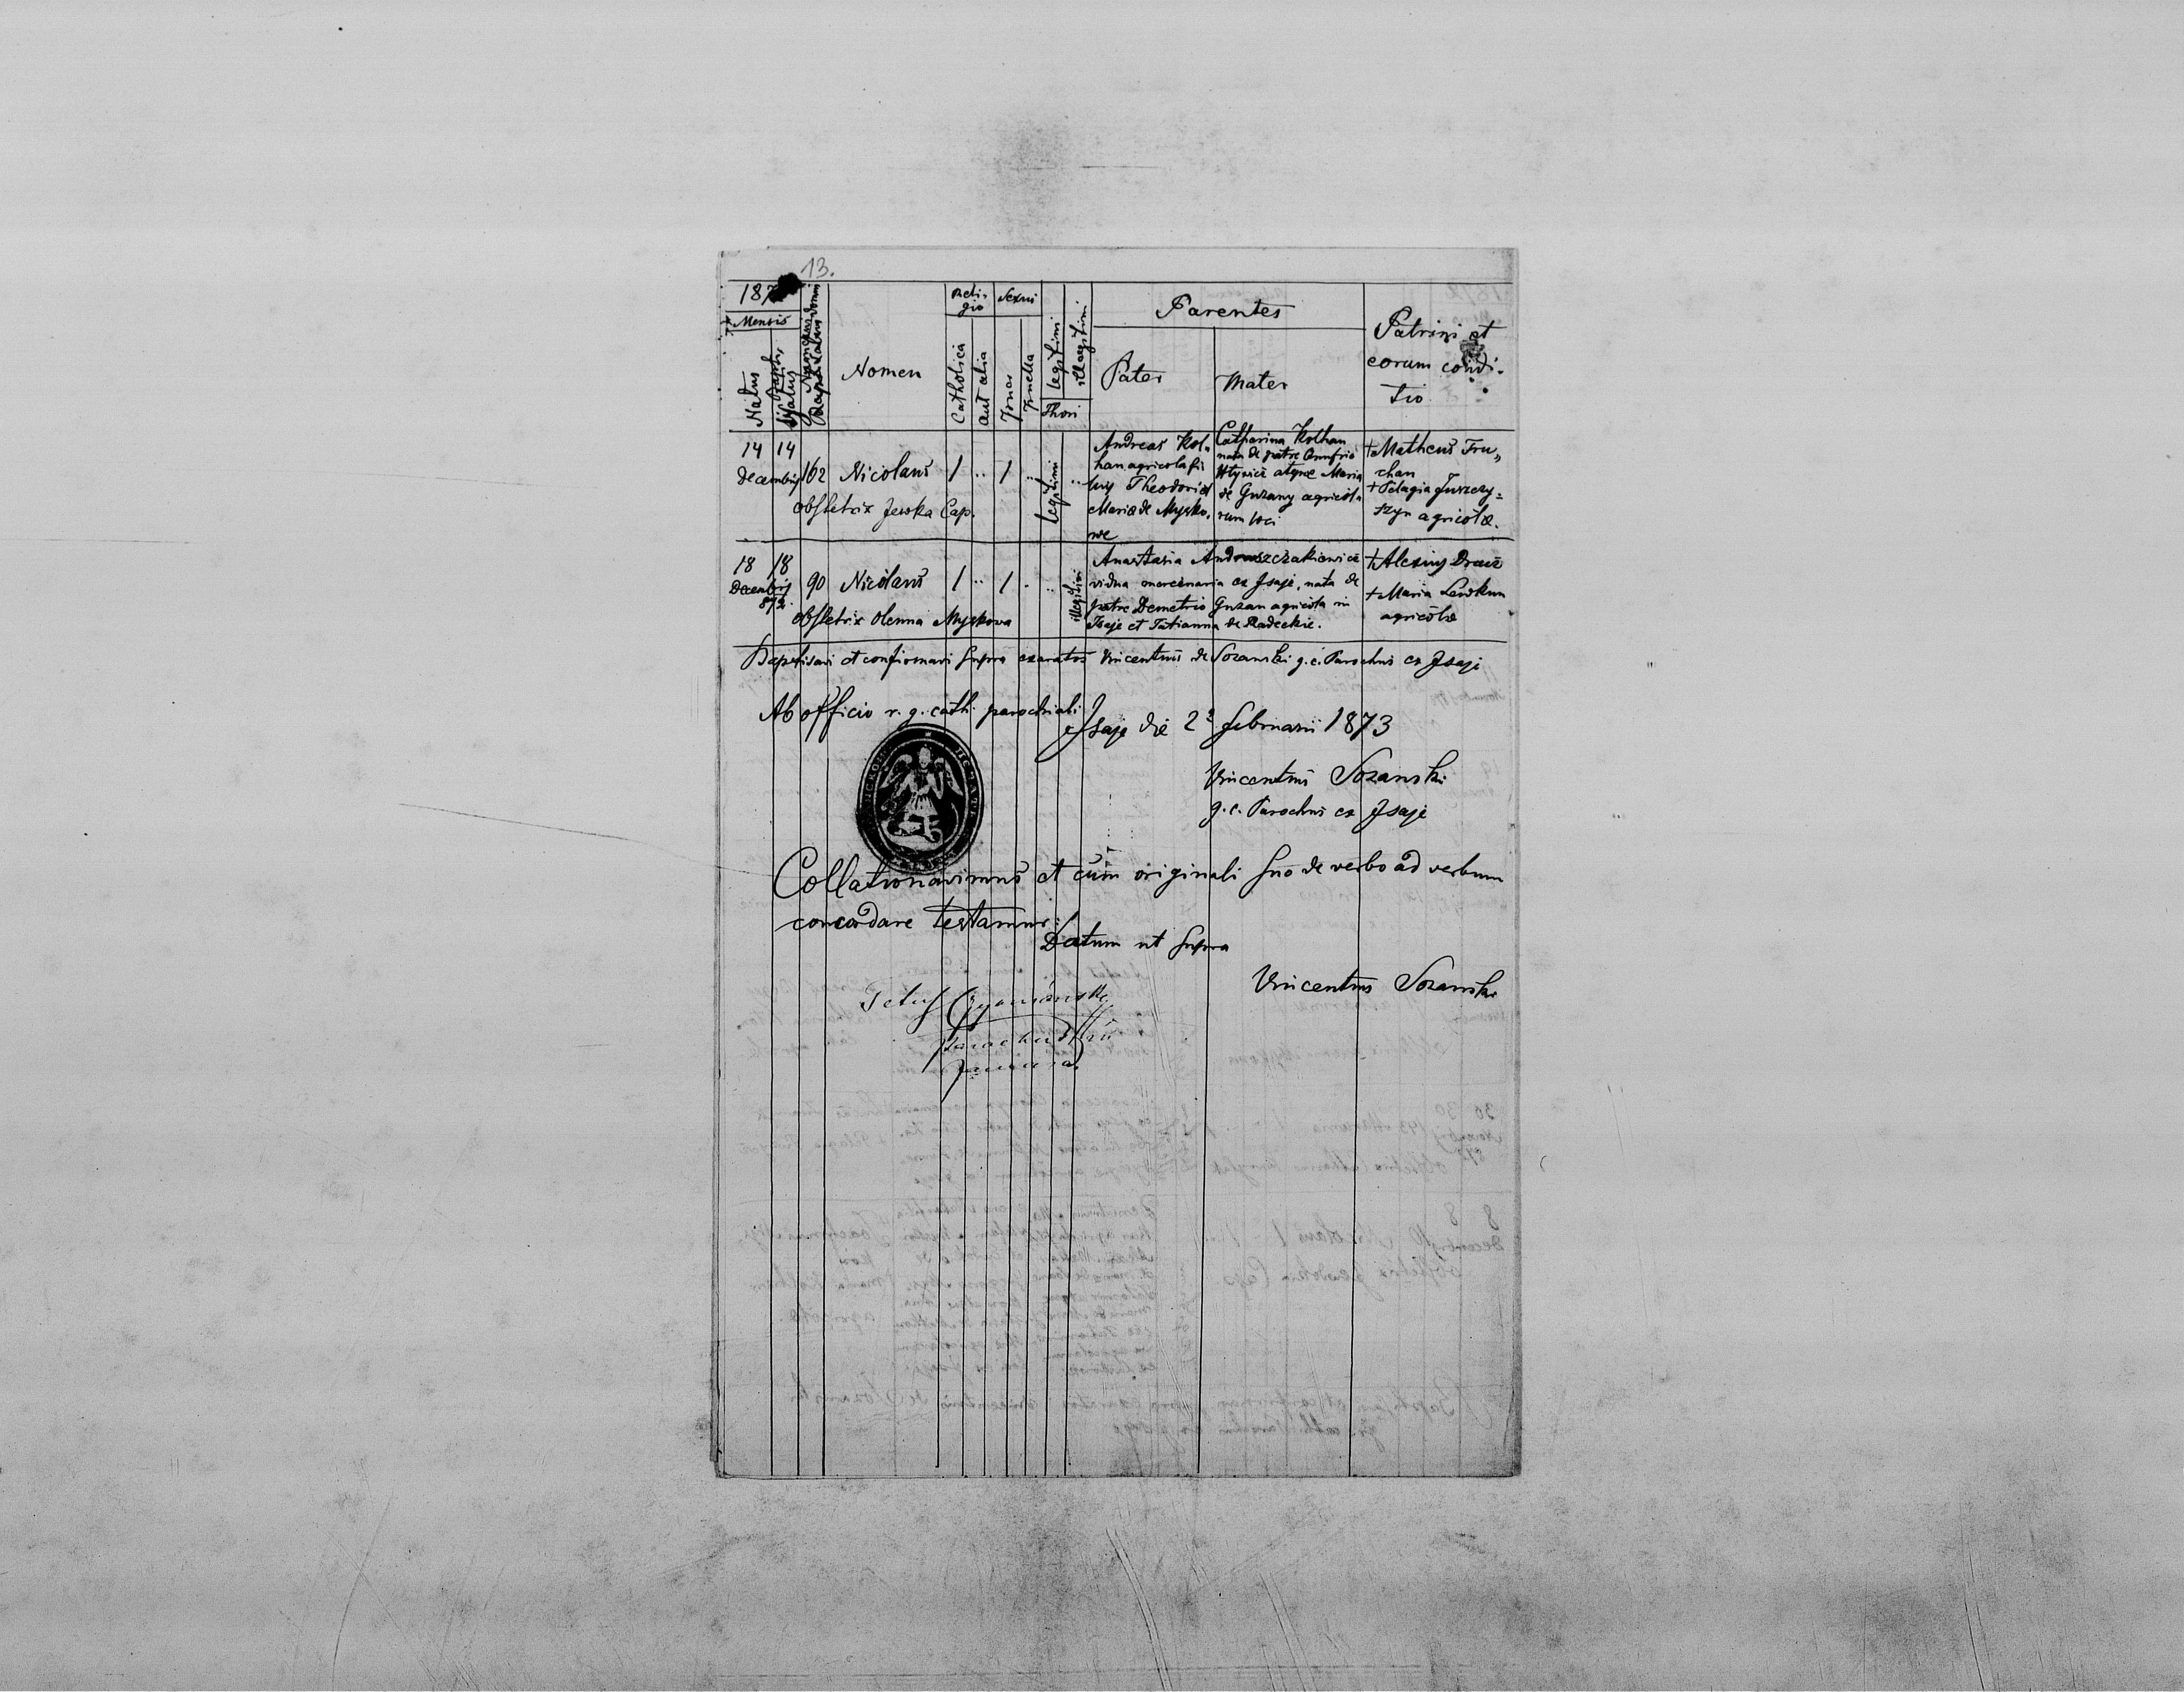 13.
187
Mensis
Natus
Baptisatus
Numerus domi
Nomen
Reli-
gio
Catholica
aut alia
Sexus
Puella
Thori
legitimi
illegitimi
Parentes
Pater
Mater
Patrini et
eorum condi-
tio
14 14
Decembris 162 Nicolaus 1 .. 1 ..
obstetrix Jewka Cap.
legitimi
Andreas Kol-
han agricola fi-
lius Theodori et
Mariæ de Mysko-
we
Catharina Kolhan
nata de patre Onufrio
atque Maria
de Guzany agricola
rum loci
+ Matheus Fru-
chan
+ Pelagia Juszczy-
szyn agricolæ.
18 18
Decembris 90 Nicolaus 1 .. 1 .
872.
obstetrix Olenna Myskowa
illegitimi
Anastasia Andruszczakiewicz
vidua mercenaria ex Isaje, nata de
patre Demetrio Guzan agricola in
Isaje et Tatianna de Radeckie.
+ Alexius Dracz
+ Maria Lewkun
agricolæ
Baptisavi et confirmavi supra exaratos Vincentius de Sozanski g. c. Parochus ex Isaje
Ab officio r. g. cath. parochiali
Isaje die 2 Februarii 1873
Vincentius Sozanski
g. c. Parochus ex Isaje
Collationavimus et cum originali suo de verbo ad verbum
concordare testamur
Datum ut supra
Vincentius Sozanski